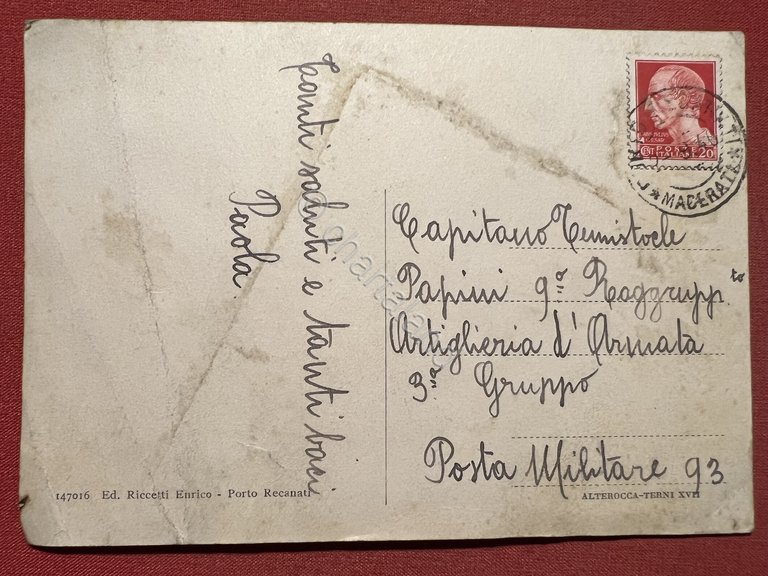 tanti saluti e tanti baci
Paola
Capitano Temistocle
Papini 9º Raggrupp.to
Artiglieria d'Armata
3º Gruppo
Posta Militare 93
147016 Ed. Riccetti Enrico - Porto Recanati
ALTEROCCA-TERNI XVII
POSTE
ITALIANE
CENT 20
MACERATA